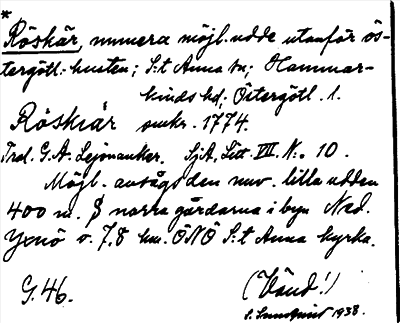 *
Röskär, numera möjl. udde utanför ös-
tergötl. kusten; S:t Anna sn; Hammar-
kinds hd; Östergötl. l.
Röskiär smkr. 1774.
Trol. G.A. Lejonancker. SjA, Litt. VII. N:o 10.
Möjl. avsågs den nuv. lilla udden
400 m. S norra gårdarna i byn Ned.
Yxnö o. 7,8 km. ÖNÖ S:t Anna kyrka.
G. 46. (Vänd!)
S. 1938.